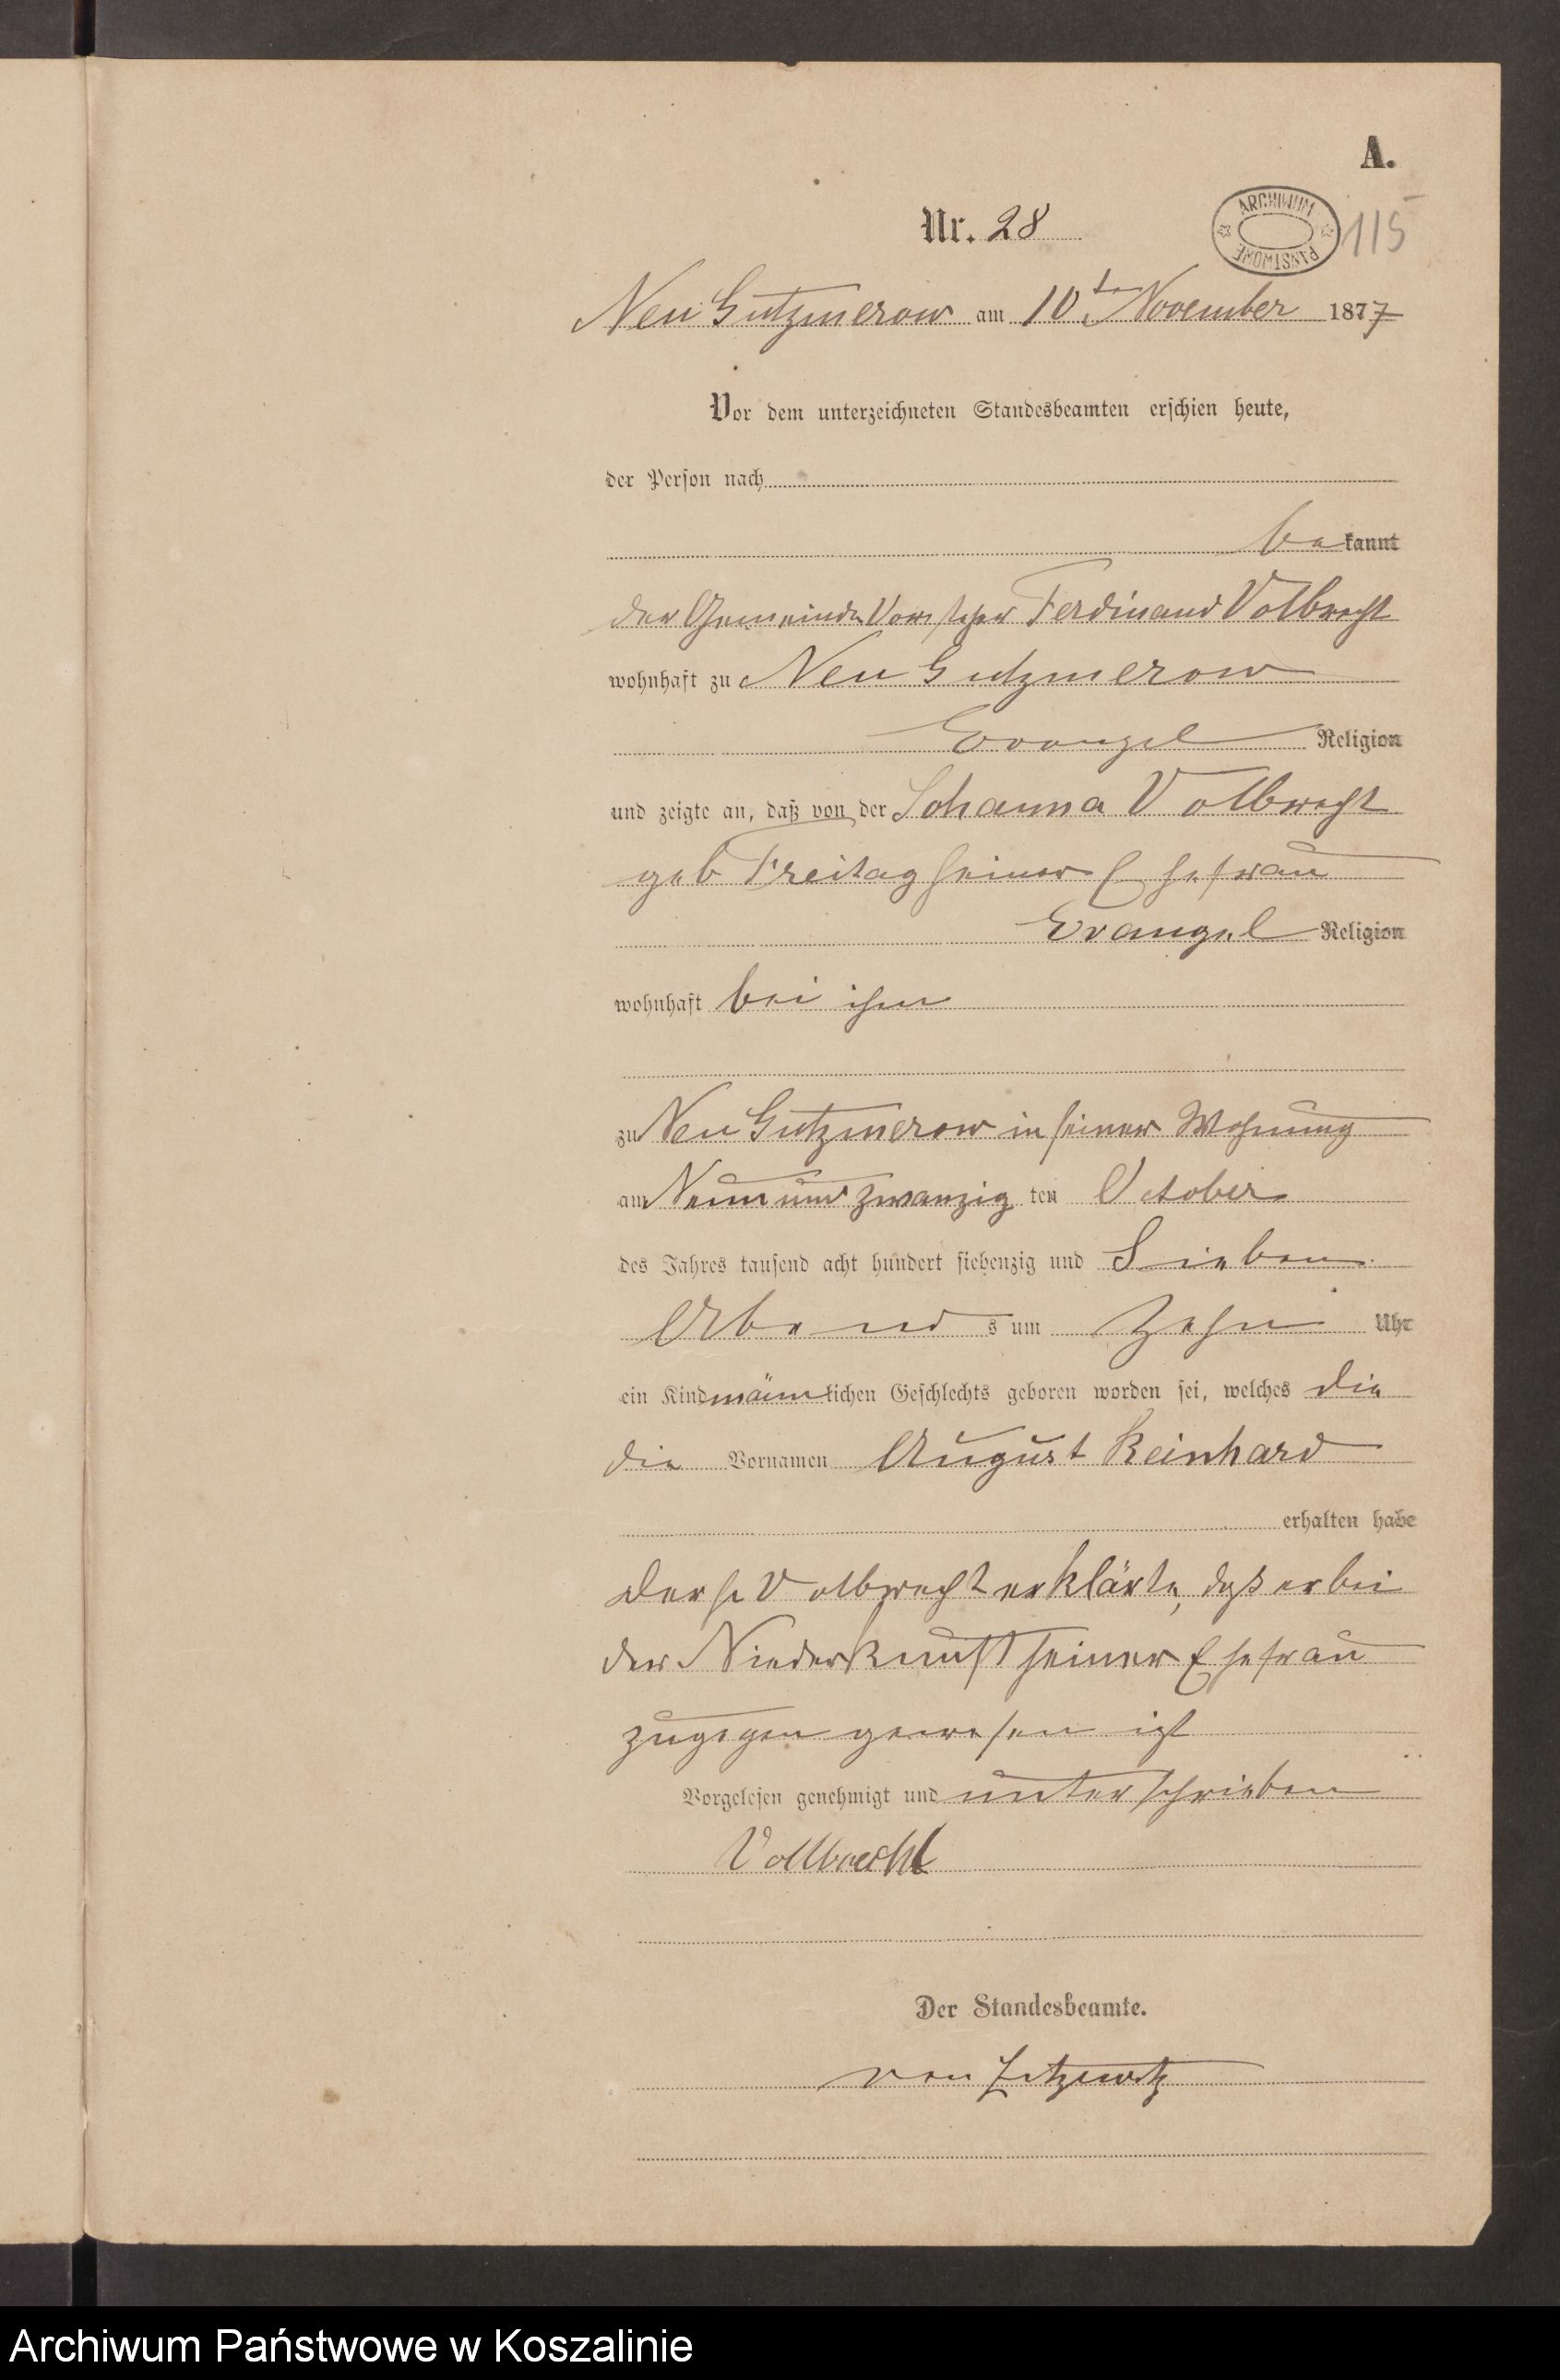 A.
Nr. 28
ARCHIWUM PAŃSTWOWE
115
Neu Gutzmerow am 10ten November 1877
Vor dem unterzeichneten Standesbeamten erschien heute,
der Person nach
bekannt
der Gemeinde Vorsteher Ferdinand Volbrecht
wohnhaft zu Neu Gutzmerow
Evangel Religion
und zeigte an, daß von der Johanna Volbrecht
geb Freitag seiner Ehefrau
Evangel Religion
wohnhaft bei ihm
zu Neu Gutzmerow in seiner Wohnung
am Neun und zwanzig ten October
des Jahres tausend acht hundert siebenzig und Sieben
Abends um Zehn Uhr
ein Kind männlichen Geschlechts geboren worden sei, welches die
die Vornamen August Reinhard
erhalten habe
Volbrecht erklärte, daß er bei
der Niederkunft seiner Ehefrau
zugegen gewesen ist
Vorgelesen genehmigt und unterschrieben
Vollbrecht
Der Standesbeamte.
von Zitzewitz
Archiwum Państwowe w Koszalinie